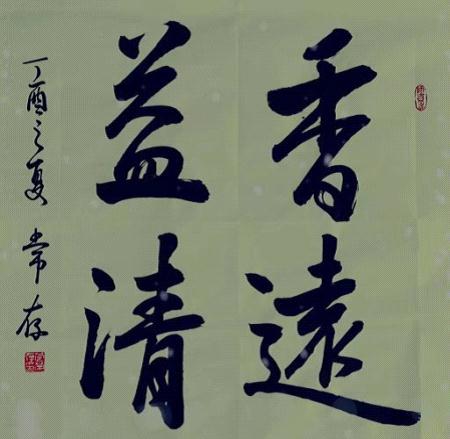 香遠
益清
丁酉之夏 常存